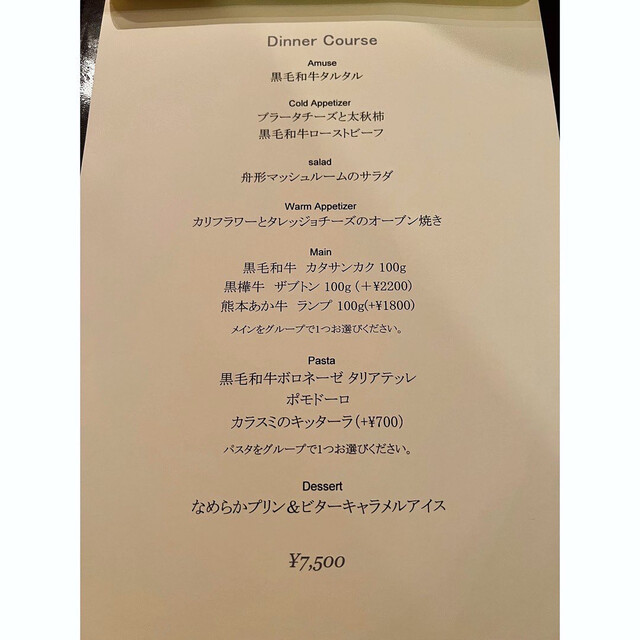 Dinner Course
Amuse
黒毛和牛タルタル
Cold Appetizer
ブラータチーズと太秋柿
黒毛和牛ローストビーフ
salad
舟形マッシュルームのサラダ
Warm Appetizer
カリフラワーとタレッジョチーズのオーブン焼き
Main
黒毛和牛 カタサンカク 100g
黒樺牛 ザブトン 100g (＋¥2200)
熊本あか牛 ランプ 100g(+¥1800)
メインをグループで1つお選びください。
Pasta
黒毛和牛ボロネーゼ タリアテッレ
ポモドーロ
カラスミのキッターラ(+¥700)
パスタをグループで1つお選びください。
Dessert
なめらかプリン＆ビターキャラメルアイス
¥7,500